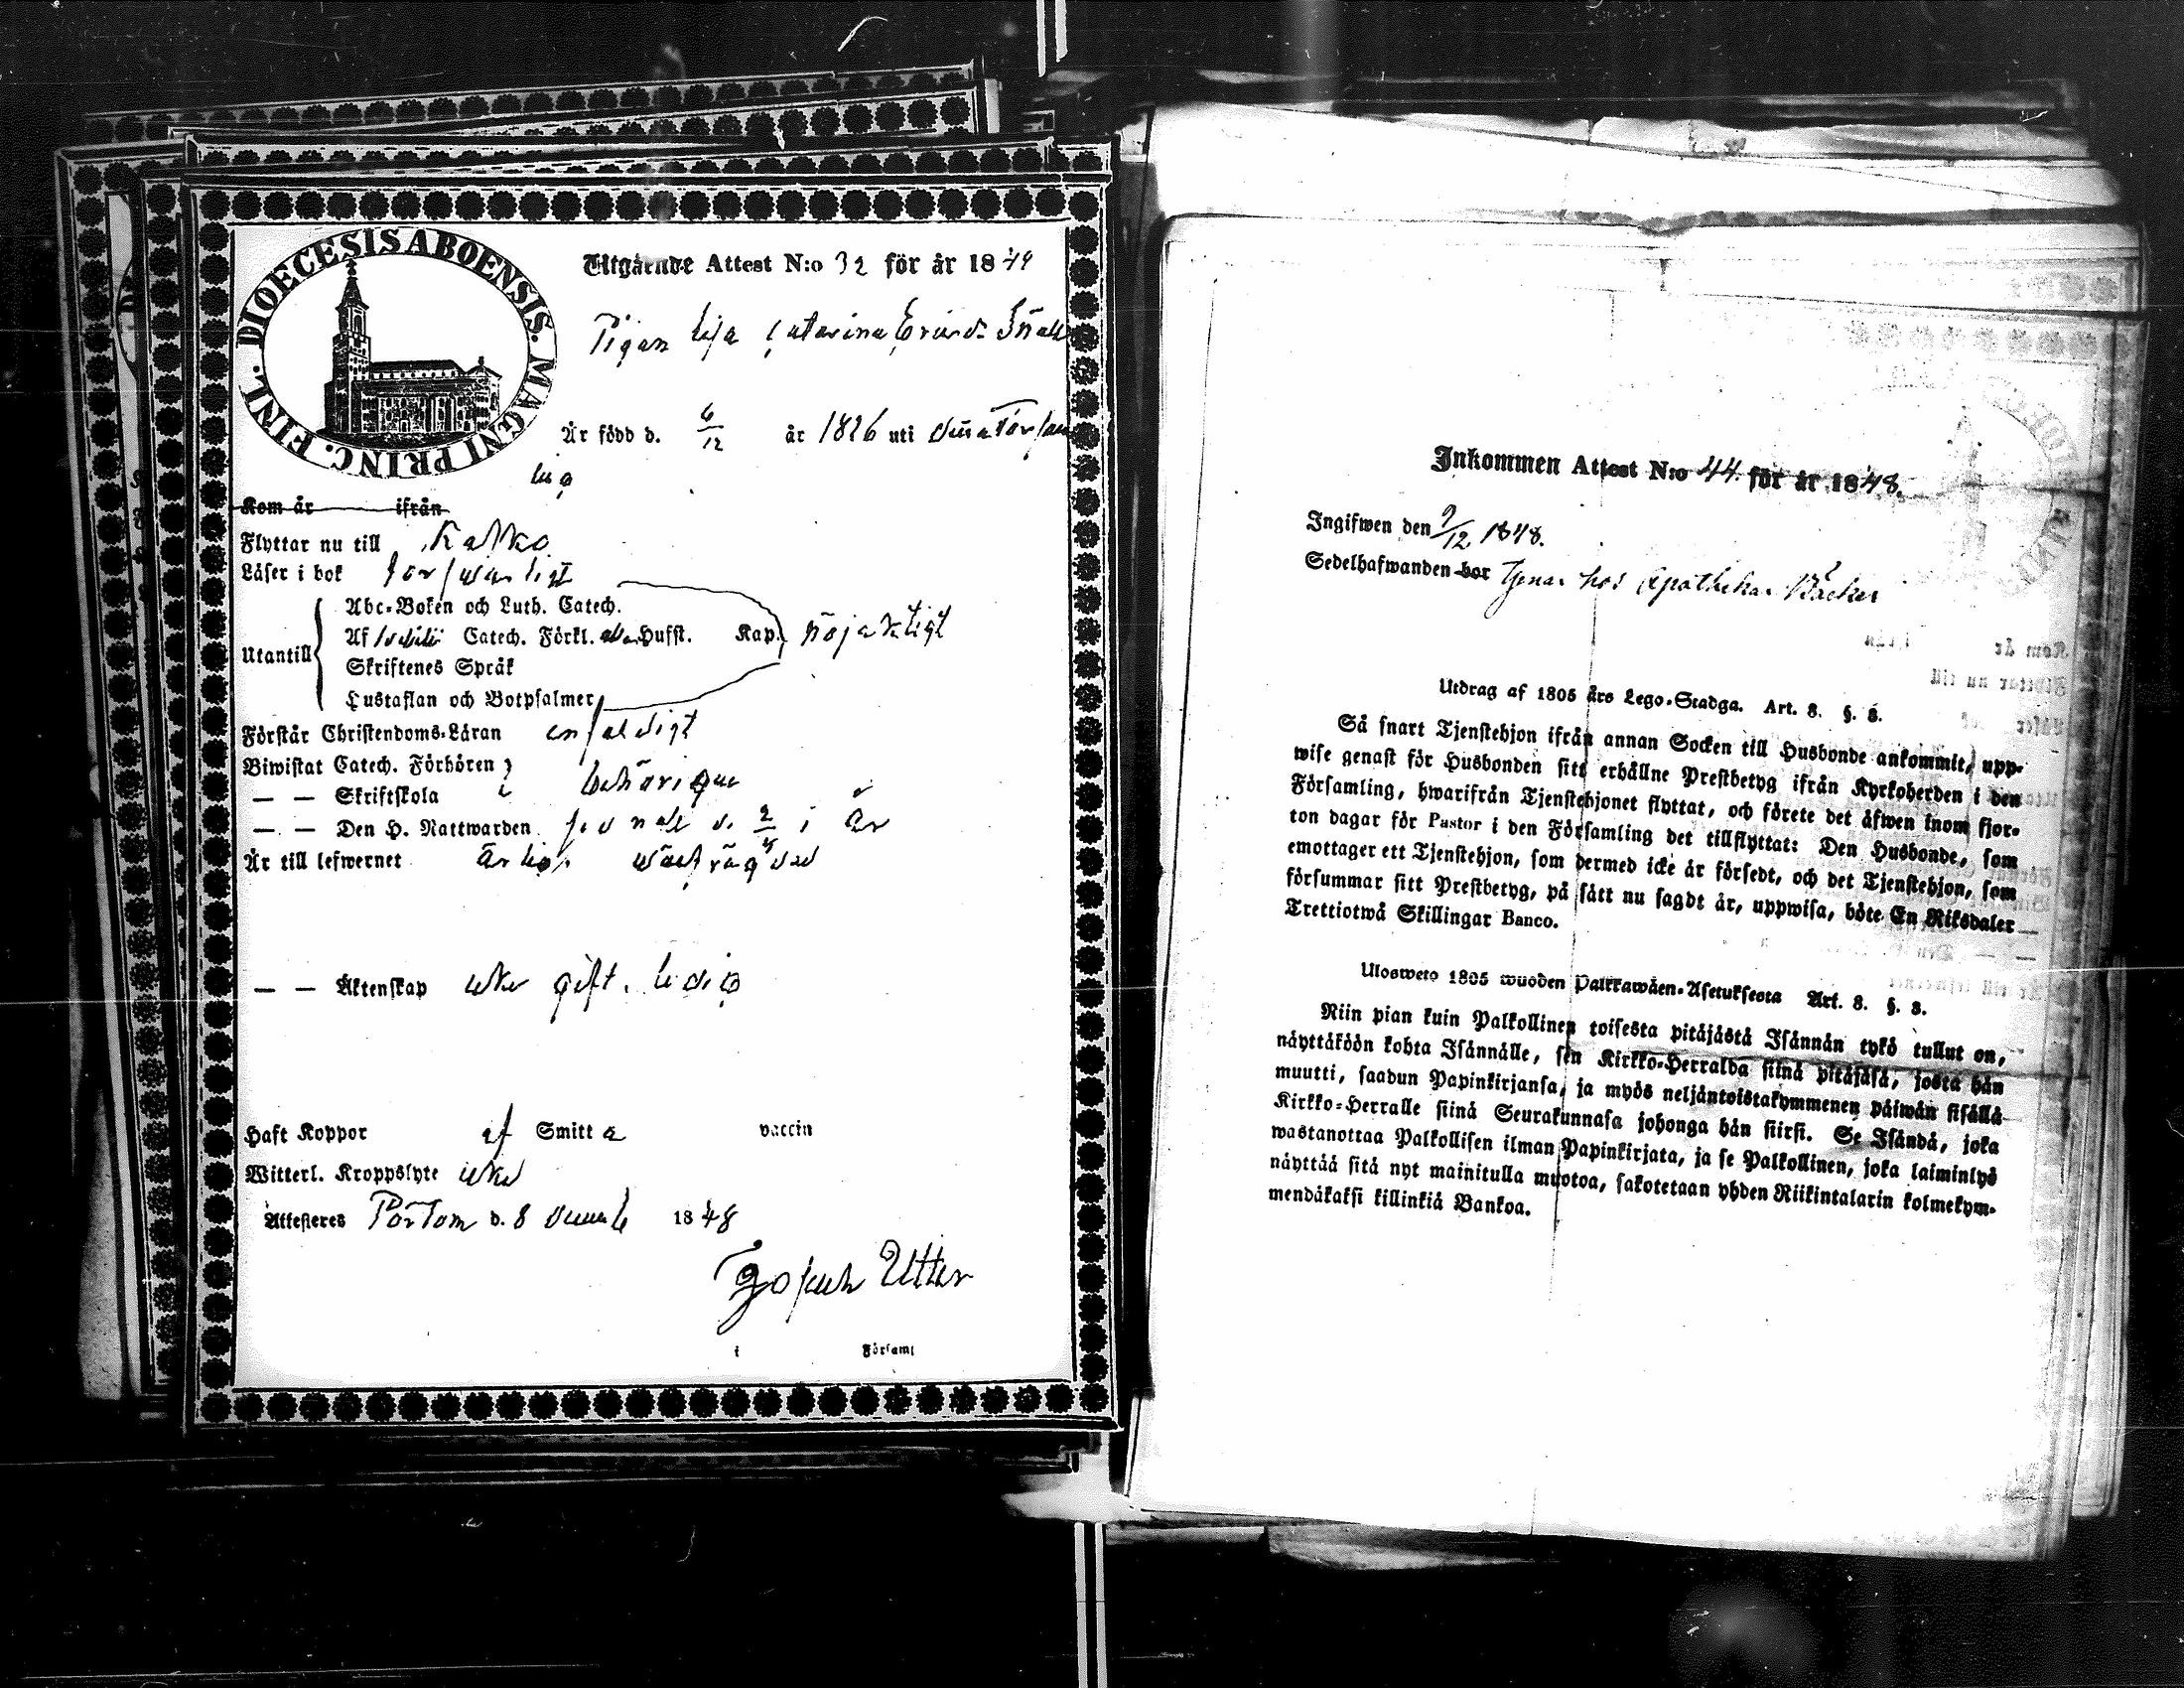 DIOECESIS ABOENSIS. MAGNI PRINC. FINL.
Utgående Attest N:o 32 för år 1849
Pigan Lisa Catarina Ericsd:
Är född d. 6/12 år 1826 uti
Kom år ifrån
Flyttar nu till Kasko
Läser i bok försvarligt
Utantill
Abc-Boken och Luth. Catech.
Af Catech. Förkl. Hufst. Kap. nöjaktigt
Skriftenes Språk
Hustaflan och Botpsalmer
Förstår Christendoms-Läran enfaldigt
Biwistat Catech. Förhören
— — Skriftskola behörigen
— — Den H. Nattwarden d. i år
Är till lefwernet ärlig.
— — Äktenskap icke gift. ledig
Haft Koppor af Smitta vaccin
Witterl. Kroppslyte icke
Attesteres Pörtom d. 8 1848
Utter
i Församl
Inkommen Attest N:o 44. för år 1848.
Ingifwen den 9/12 1848.
Sedelhafwanden bor tjenar hos Apothekar Bäcker
Utdrag af 1805 års Lego-Stadga. Art. 8. §. 8.
Så snart Tjenstehjon ifrån annan Socken till Husbonde ankommit, upp-
wise genast för Husbonden sitt erhållne Prestbetyg ifrån Kyrkoherden i den
Församling, hwarifrån Tjenstehjonet flyttat, och förete det äfwen inom fjor-
ton dagar för Pastor i den Församling det tillflyttat: Den Husbonde, som
emottager ett Tjenstehjon, som dermed icke är försedt, och det Tjenstehjon, som
försummar sitt Prestbetyg, på sätt nu sagdt är, uppwisa, böte En Riksdaler
Trettiotwå Skillingar Banco.
Ulosweto 1805 wuoden Palkkawäen-Asetuksesta Art. 8. §. 8.
Niin pian kuin Palkollinen toisesta pitäjästä Isännän tykö tullut on,
näyttäköön kohta Isännälle, sen Kirkko-Herralda siinä pitäjäsä, josta hän
muutti, saadun Papinkirjansa, ja myös neljäntoistakymmenen päiwän sisällä
Kirkko-Herralle siinä Seurakunnasa johonga hän siirsi. Se Isändä, joka
wastanottaa Palkollisen ilman Papinkirjata, ja se Palkollinen, joka laiminlyö
näyttää sitä nyt mainitulla muotoa, sakotetaan yhden Riikintalarin kolmekym-
mendäkaksi killinkiä Bankoa.